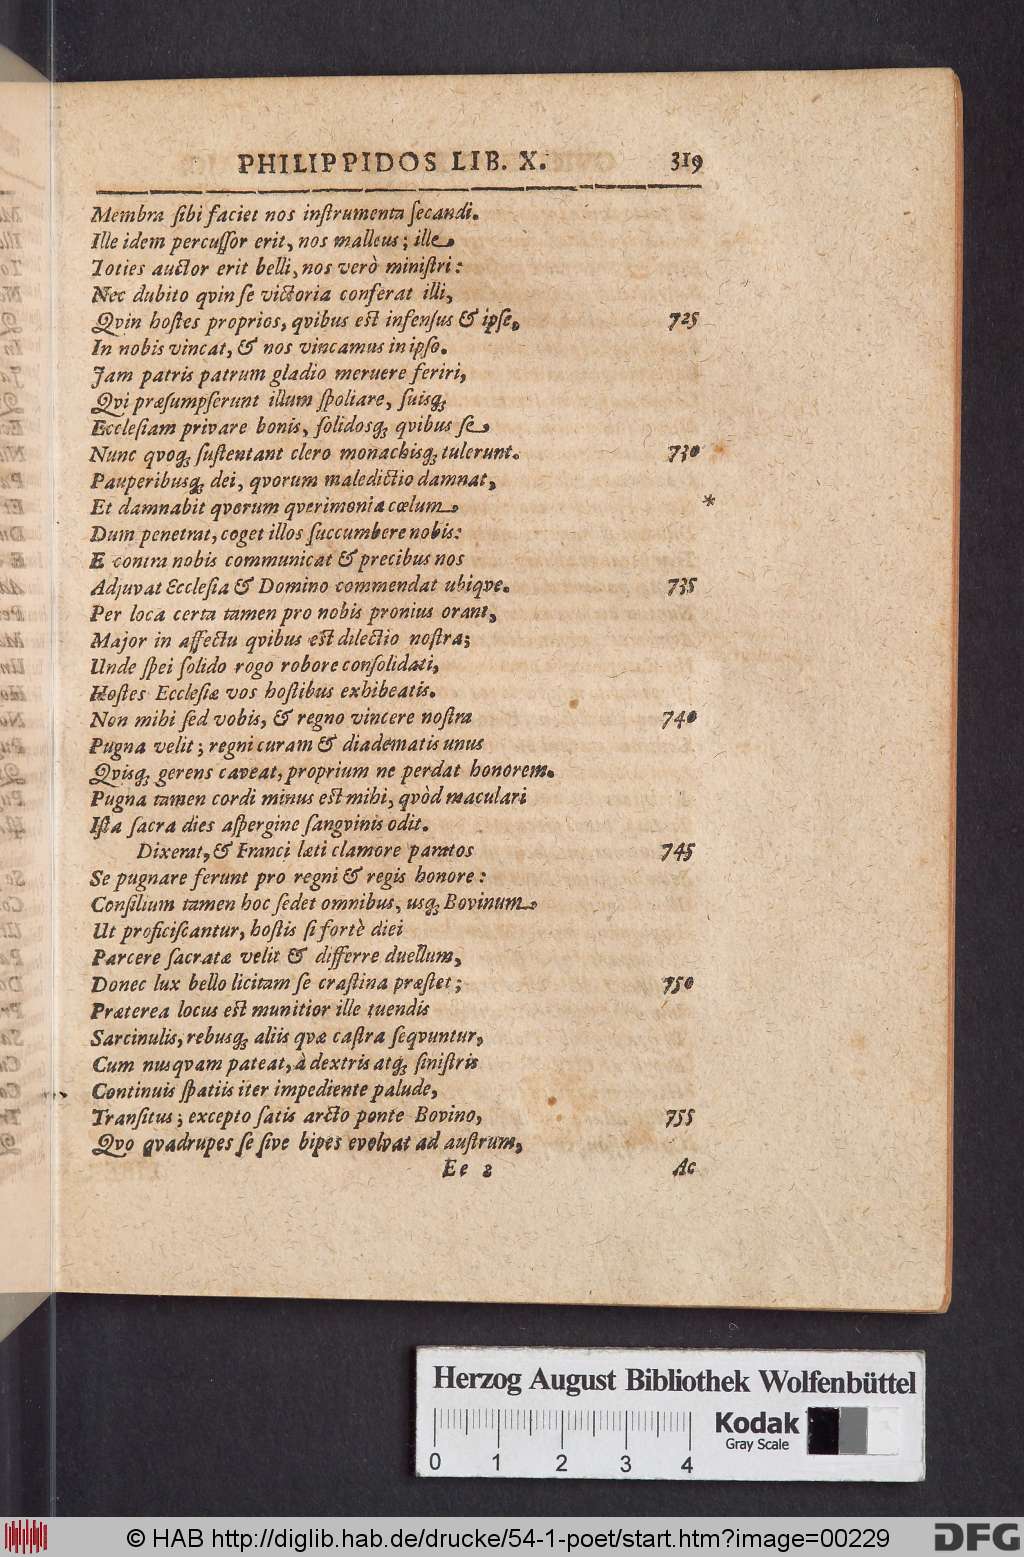 PHILIPPIDOS LIB. X. 319
Membra ſibi faciet nos inſtrumenta ſecandi.
Ille idem percuſſor erit, nos malleus; ille
Toties auctor erit belli, nos verò miniſtri:
Nec dubito qvin ſe victoria conferat illi,
Qvin hoſtes proprios, qvibus eſt infenſus & ipſe, 725
In nobis vincat, & nos vincamus in ipſo.
Jam patris patrum gladio meruere feriri,
Qvi præſumpſerunt illum ſpoliare, ſuisq;
Eccleſiam privare bonis, ſolidosq; qvibus ſe
Nunc qvoq; ſuſtentant clero monachisq; tulerunt. 730
Pauperibusq; dei, qvorum maledictio damnat,
Et damnabit qvorum qverimonia cœlum *
Dum penetrat, coget illos ſuccumbere nobis:
E contra nobis communicat & precibus nos
Adjuvat Eccleſia & Domino commendat ubiqve. 735
Per loca certa tamen pro nobis pronius orant,
Major in affectu qvibus eſt dilectio noſtra;
Unde ſpei ſolido rogo robore conſolidati,
Hoſtes Eccleſiæ vos hoſtibus exhibeatis.
Non mihi ſed vobis, & regno vincere noſtra 740
Pugna velit; regni curam & diadematis unus
Qvisq; gerens caveat, proprium ne perdat honorem.
Pugna tamen cordi minus eſt mihi, qvòd maculari
Iſta ſacra dies aſpergine ſangvinis odit.
Dixerat, & Franci læti clamore paratos 745
Se pugnare ferunt pro regni & regis honore:
Conſilium tamen hoc ſedet omnibus, usq; Bovinum
Ut proficiſcantur, hoſtis ſi fortè diei
Parcere ſacratæ velit & differre duellum,
Donec lux bello licitam ſe craſtina præſtet; 750
Præterea locus eſt munitior ille tuendis
Sarcinulis, rebusq; aliis qvæ caſtra ſeqvuntur,
Cum nusqvam pateat, à dextris atq; ſiniſtris
Continuis ſpatiis iter impediente palude,
Tranſitus; excepto ſatis arcto ponte Bovino, 755
Qvo qvadrupes ſe ſive bipes evolvat ad auſtrum,
Ee 2 Ac
Herzog August Bibliothek Wolfenbüttel
Kodak
Gray Scale
0 1 2 3 4
© HAB http://diglib.hab.de/drucke/54-1-poet/start.htm?image=00229
DFG